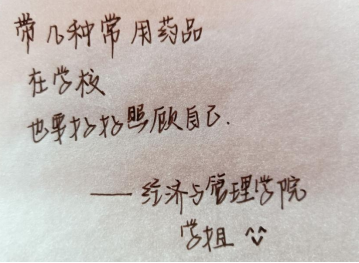 带几种常用药品
在学校
也要好好照顾自己.
——经济与管理学院
学姐